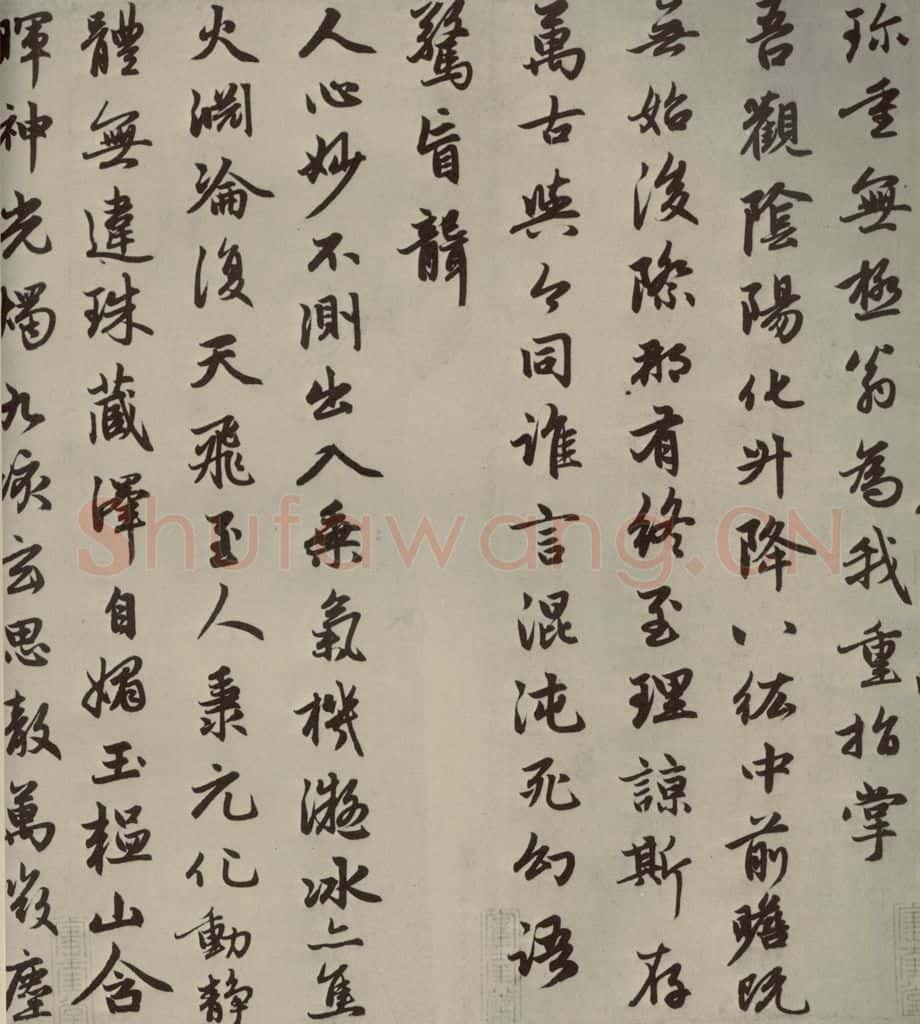 珎重無極翁為我重指掌
吾觀陰陽化升降八紘中前瞻既
無始後際那有終至理諒斯存
萬古與今同誰言混沌死幻語
驚盲聾
人心妙不測出入乗氣機凝冰亦焦
火淵淪復天飛至人秉元化動静
體無違珠藏澤自媚玉韞山含
暉神光燭九垓玄思徹萬微塵
Shufawang.CN